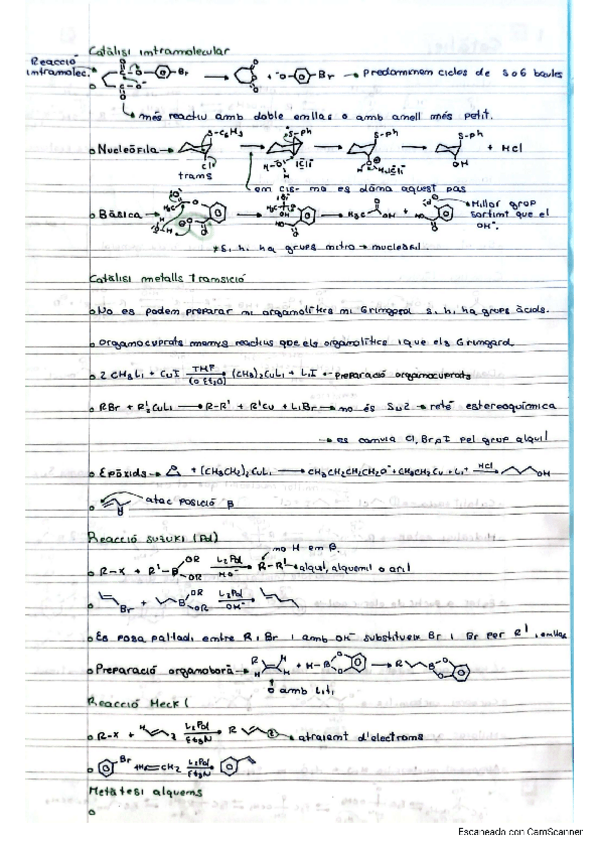 Catàlisi intramolecular
Reacció intramolec.
Br + -O Br → Predominen cicles de 5 o 6 baules
més reactiu amb doble enllaç o amb anell més petit.
Nucleòfila → S-C6H5 S-ph S-ph S-ph + HCl
Cl H-O H OH
trans
en cis- no es dóna aquest pas
Bàsica → + Millor grup sortint que el OH-.
* Si hi ha grups nitro → nucleòfil.
Catàlisi metalls transició
No es poden preparar ni organolítics ni Grignard si hi ha grups àcids.
Organocuprats menys reactius que els organolítics i que els Grignard
2 CH3Li + CuI THF (o Et2O) → (CH3)2CuLi + LiI ← preparació organocuprats
RBr + R'2CuLi → R-R' + R'Cu + LiBr → no és SN2 → reté estereoquímica
→ es canvia Cl, Br, I pel grup alquil
Epòxids → + (CH3CH2)2CuLi → CH3CH2CH2CH2O- + CH3CH2Cu + Li+ HCl → OH
atac posició β
Reacció SUZUKI (Pd)
no H en β.
R-X + R'-B OR OR L2Pd HO- → R-R' → alquil, alquenil o aril
Br + B OR OR L2Pd OH- →
Es posa pal·ladi entre R i Br i amb OH- substituïm Br i Br per R'
Preparació organoborà → R H H + H-B O O → R B O O
o amb Li
Reacció Heck
R-X + H Z L2Pd Et3N → R Z → atraient d'electrons
Br + H CH2 L2Pd Et3N →
Metàtesi alquens
Escaneado con CamScanner